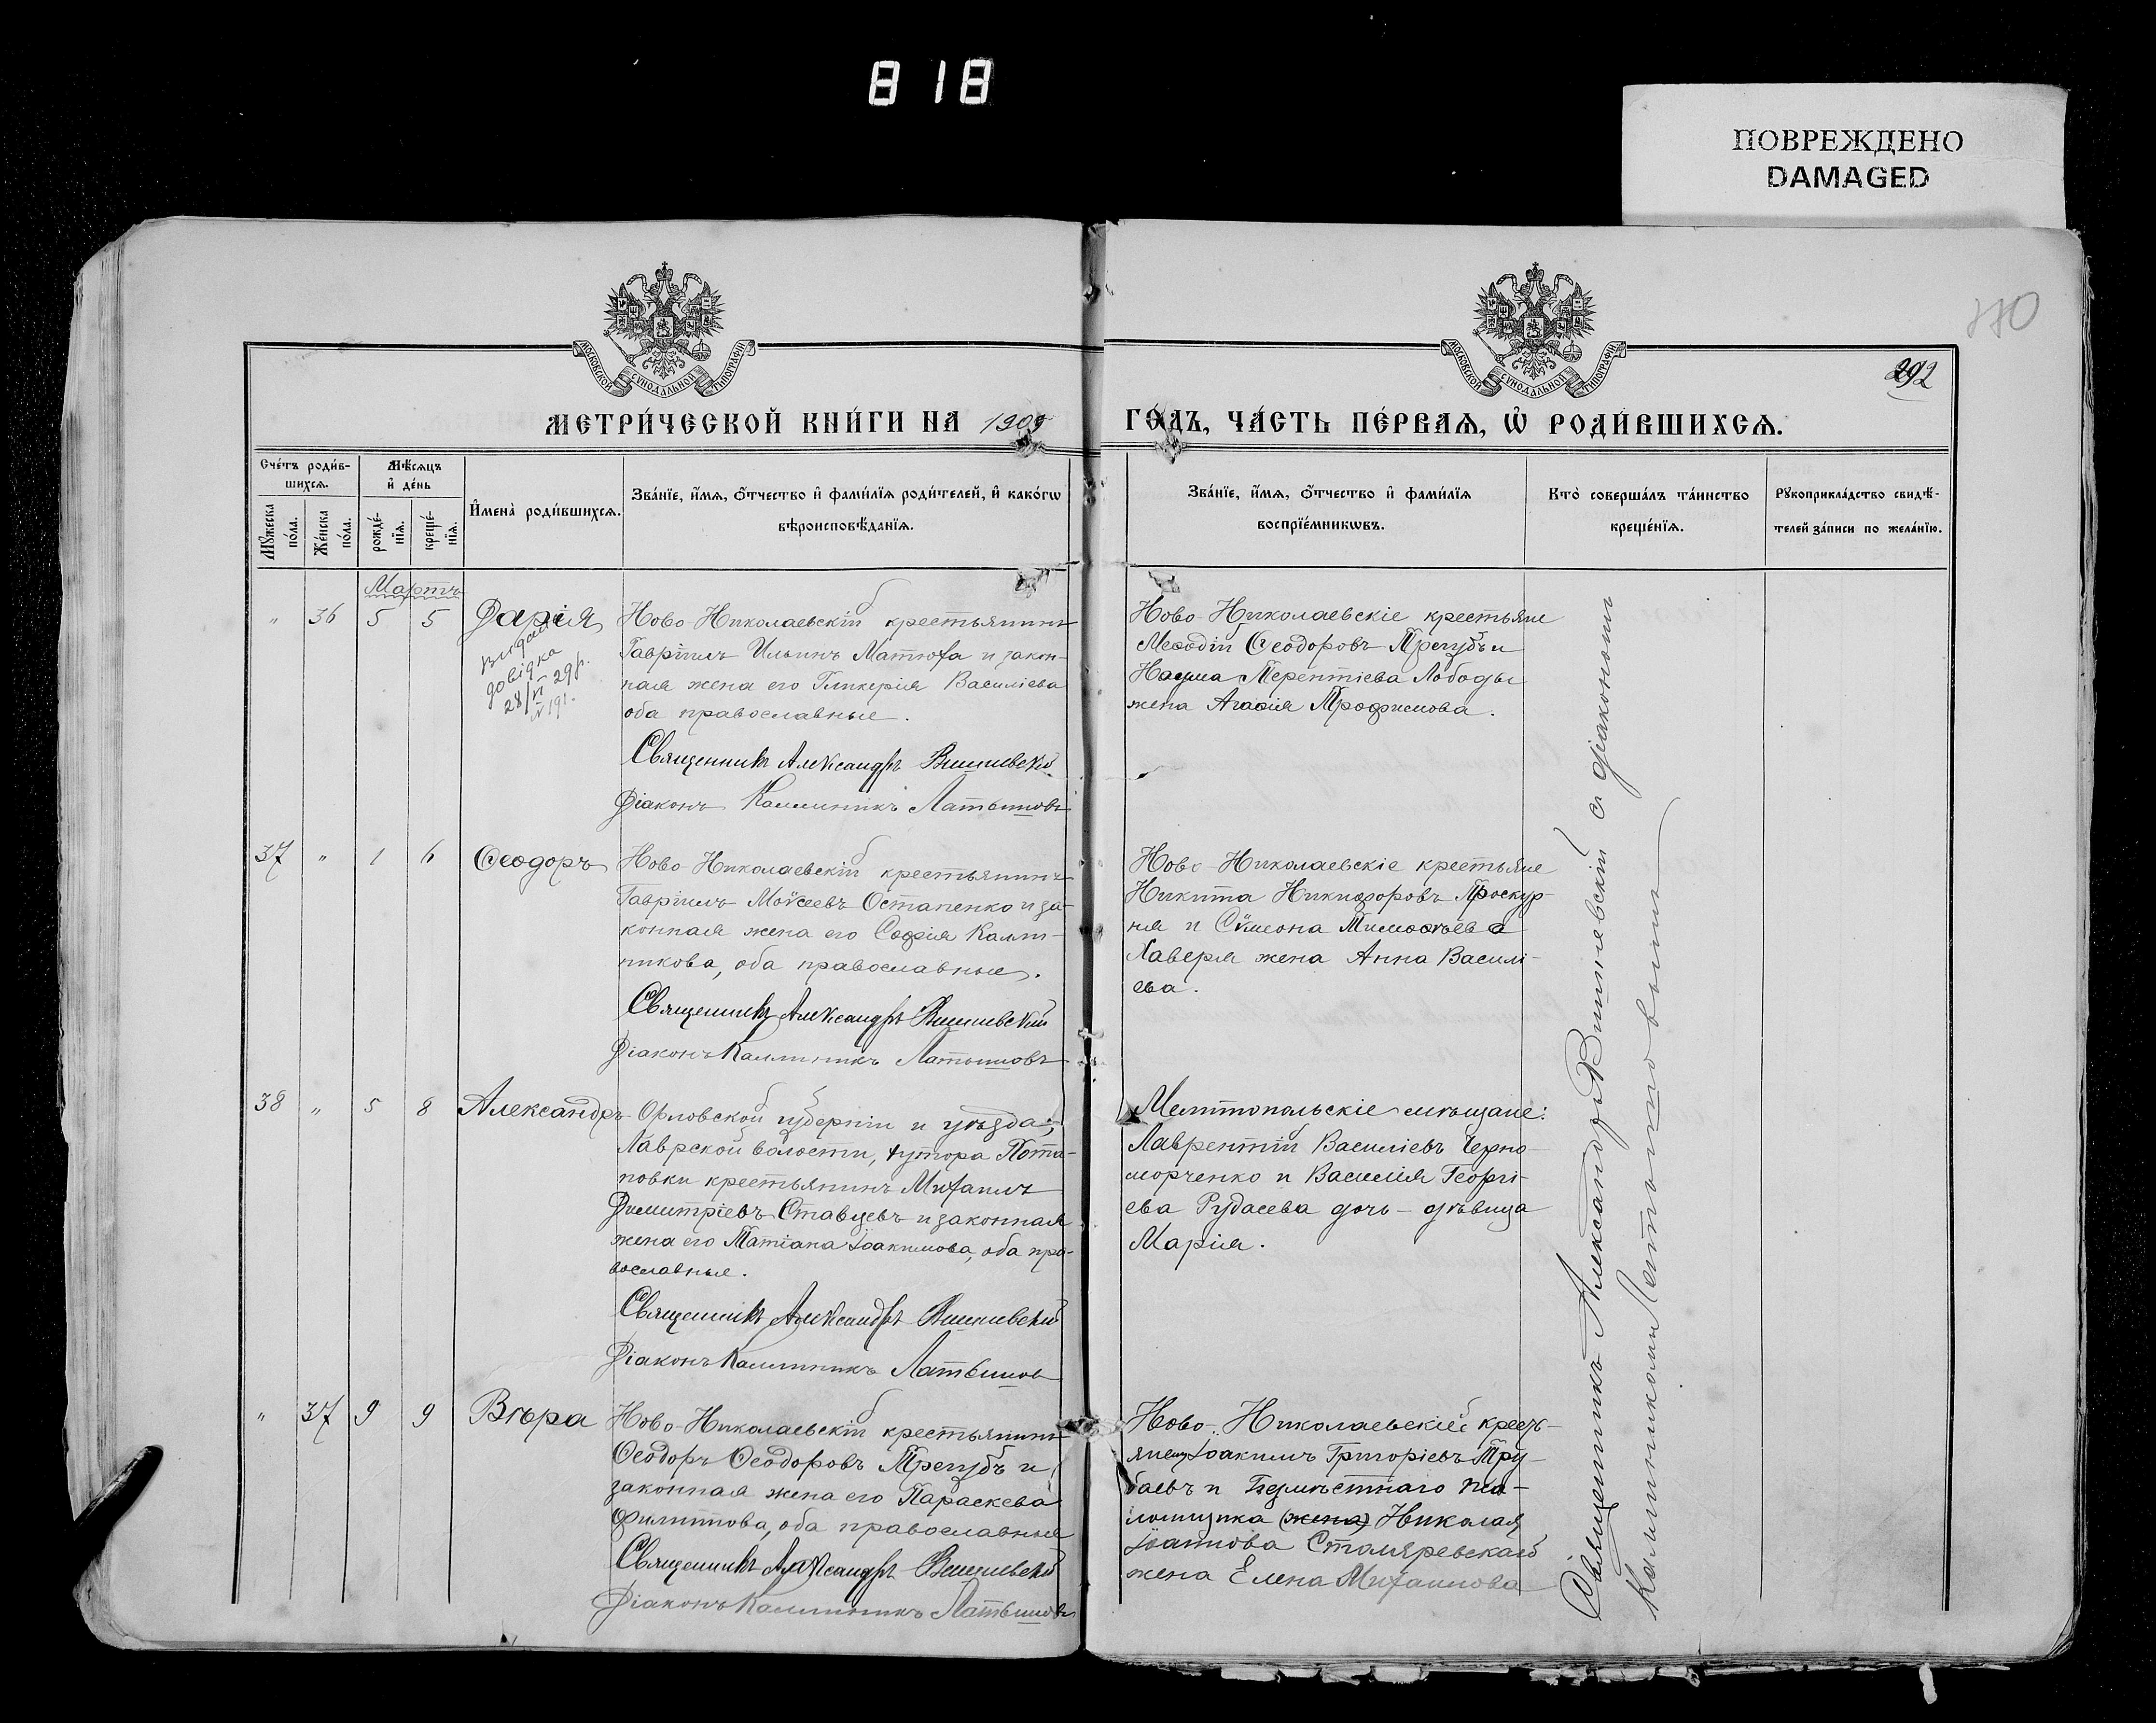 818
ПОВРЕЖДЕНО
DAMAGED
МОСКОВСКОЙ СѴНОДАЛЬНОЙ ТИПОГРАФІИ
МОСКОВСКОЙ СѴНОДАЛЬНОЙ ТИПОГРАФІИ
292
МЕТРИ́ЧЕСКОЙ КНИ́ГИ НА 1909
ГО́ДЪ, ЧА́СТЬ ПЕ́РВАѦ, Ѡ҆ РОДИ́ВШИХСѦ.
Сче́тъ роди́в-
шихсѧ.
Мѣ́сѧцъ
и҆ де́нь
Мꙋ́жеска
по́ла.
Же́нска
по́ла.
рожде́-
нїѧ.
креще́-
нїѧ.
И҆мена̀ роди́вшихсѧ.
Зва́нїе, и҆́мѧ, ѻ҆́тчество и҆ фами́лїѧ роди́телей, и҆ како́гѡ
вѣроисповѣ́данїѧ.
Зва́нїе, и҆́мѧ, ѻ҆́тчество и҆ фами́лїѧ
воспрїе́мникѡвъ.
Кто̀ соверша́лъ та́инство
креще́нїѧ.
Рꙋкоприкла́дство свидѣ́-
телей за́писи по жела́нїю.
Мартъ
" 36 5 5 Дарія
довідка
28/VI 29 р.
№ 191.
Ново-Николаевскій крестьянинъ
Гавріилъ Ильинъ Матюха и закон-
ная жена его Гликерія Василіева
оба православные.
Священникъ Александръ Вишневскій
Діаконъ Каллиникъ Латышовъ
Ново-Николаевскіе крестьяне
Меѳодій Ѳеодоровъ Трегубъ и
Наума Терентіева Лободы
жена Агаѳія Трофимова.
37 " 1 6 Ѳеодоръ
Ново-Николаевскій крестьянинъ
Гавріилъ Моѵсеевъ Остапенко и за-
конная жена его Софія Калли-
никова, оба православные.
Священникъ Александръ Вишневскій
Діаконъ Каллиникъ Латышовъ
Ново-Николаевскіе крестьяне
Никита Никифоровъ Проскур-
ня и Сѵмеона Тимоѳеева
Хаверя жена Анна Василі-
ева.
38 " 5 8 Александръ
Орловской губерніи и уѣзда,
Лаврской волости, хутора Пота-
повки крестьянинъ Михаилъ
Димитріевъ Ставцевъ и законная
жена его Татіана Іоакимова, оба пра-
вославные.
Священникъ Александръ Вишневскій
Діаконъ Каллиникъ Латышовъ
Мелитопольскіе мѣщане:
Лаврентій Василіевъ Черно-
морченко и Василія Георгі-
ева Рудасева дочь - дѣвица
Марія.
" 37 9 9 Вѣра
Ново-Николаевскій крестьянинъ
Ѳеодоръ Ѳеодоровъ Трегубъ и
законная жена его Параскева
Филиппова, оба православные
Священникъ Александръ Вишневскій
Діаконъ Каллиникъ Латышовъ
Ново-Николаевскій
Іоакимъ Григоріевъ Тру-
баевъ и Безмѣстнаго пса-
ломщика (жена) Николая
Іоаннова Столяревскаго
жена Елена Михаилова
Священникъ Александръ Вишневскій съ діакономъ
Каллиникомъ Латышовымъ